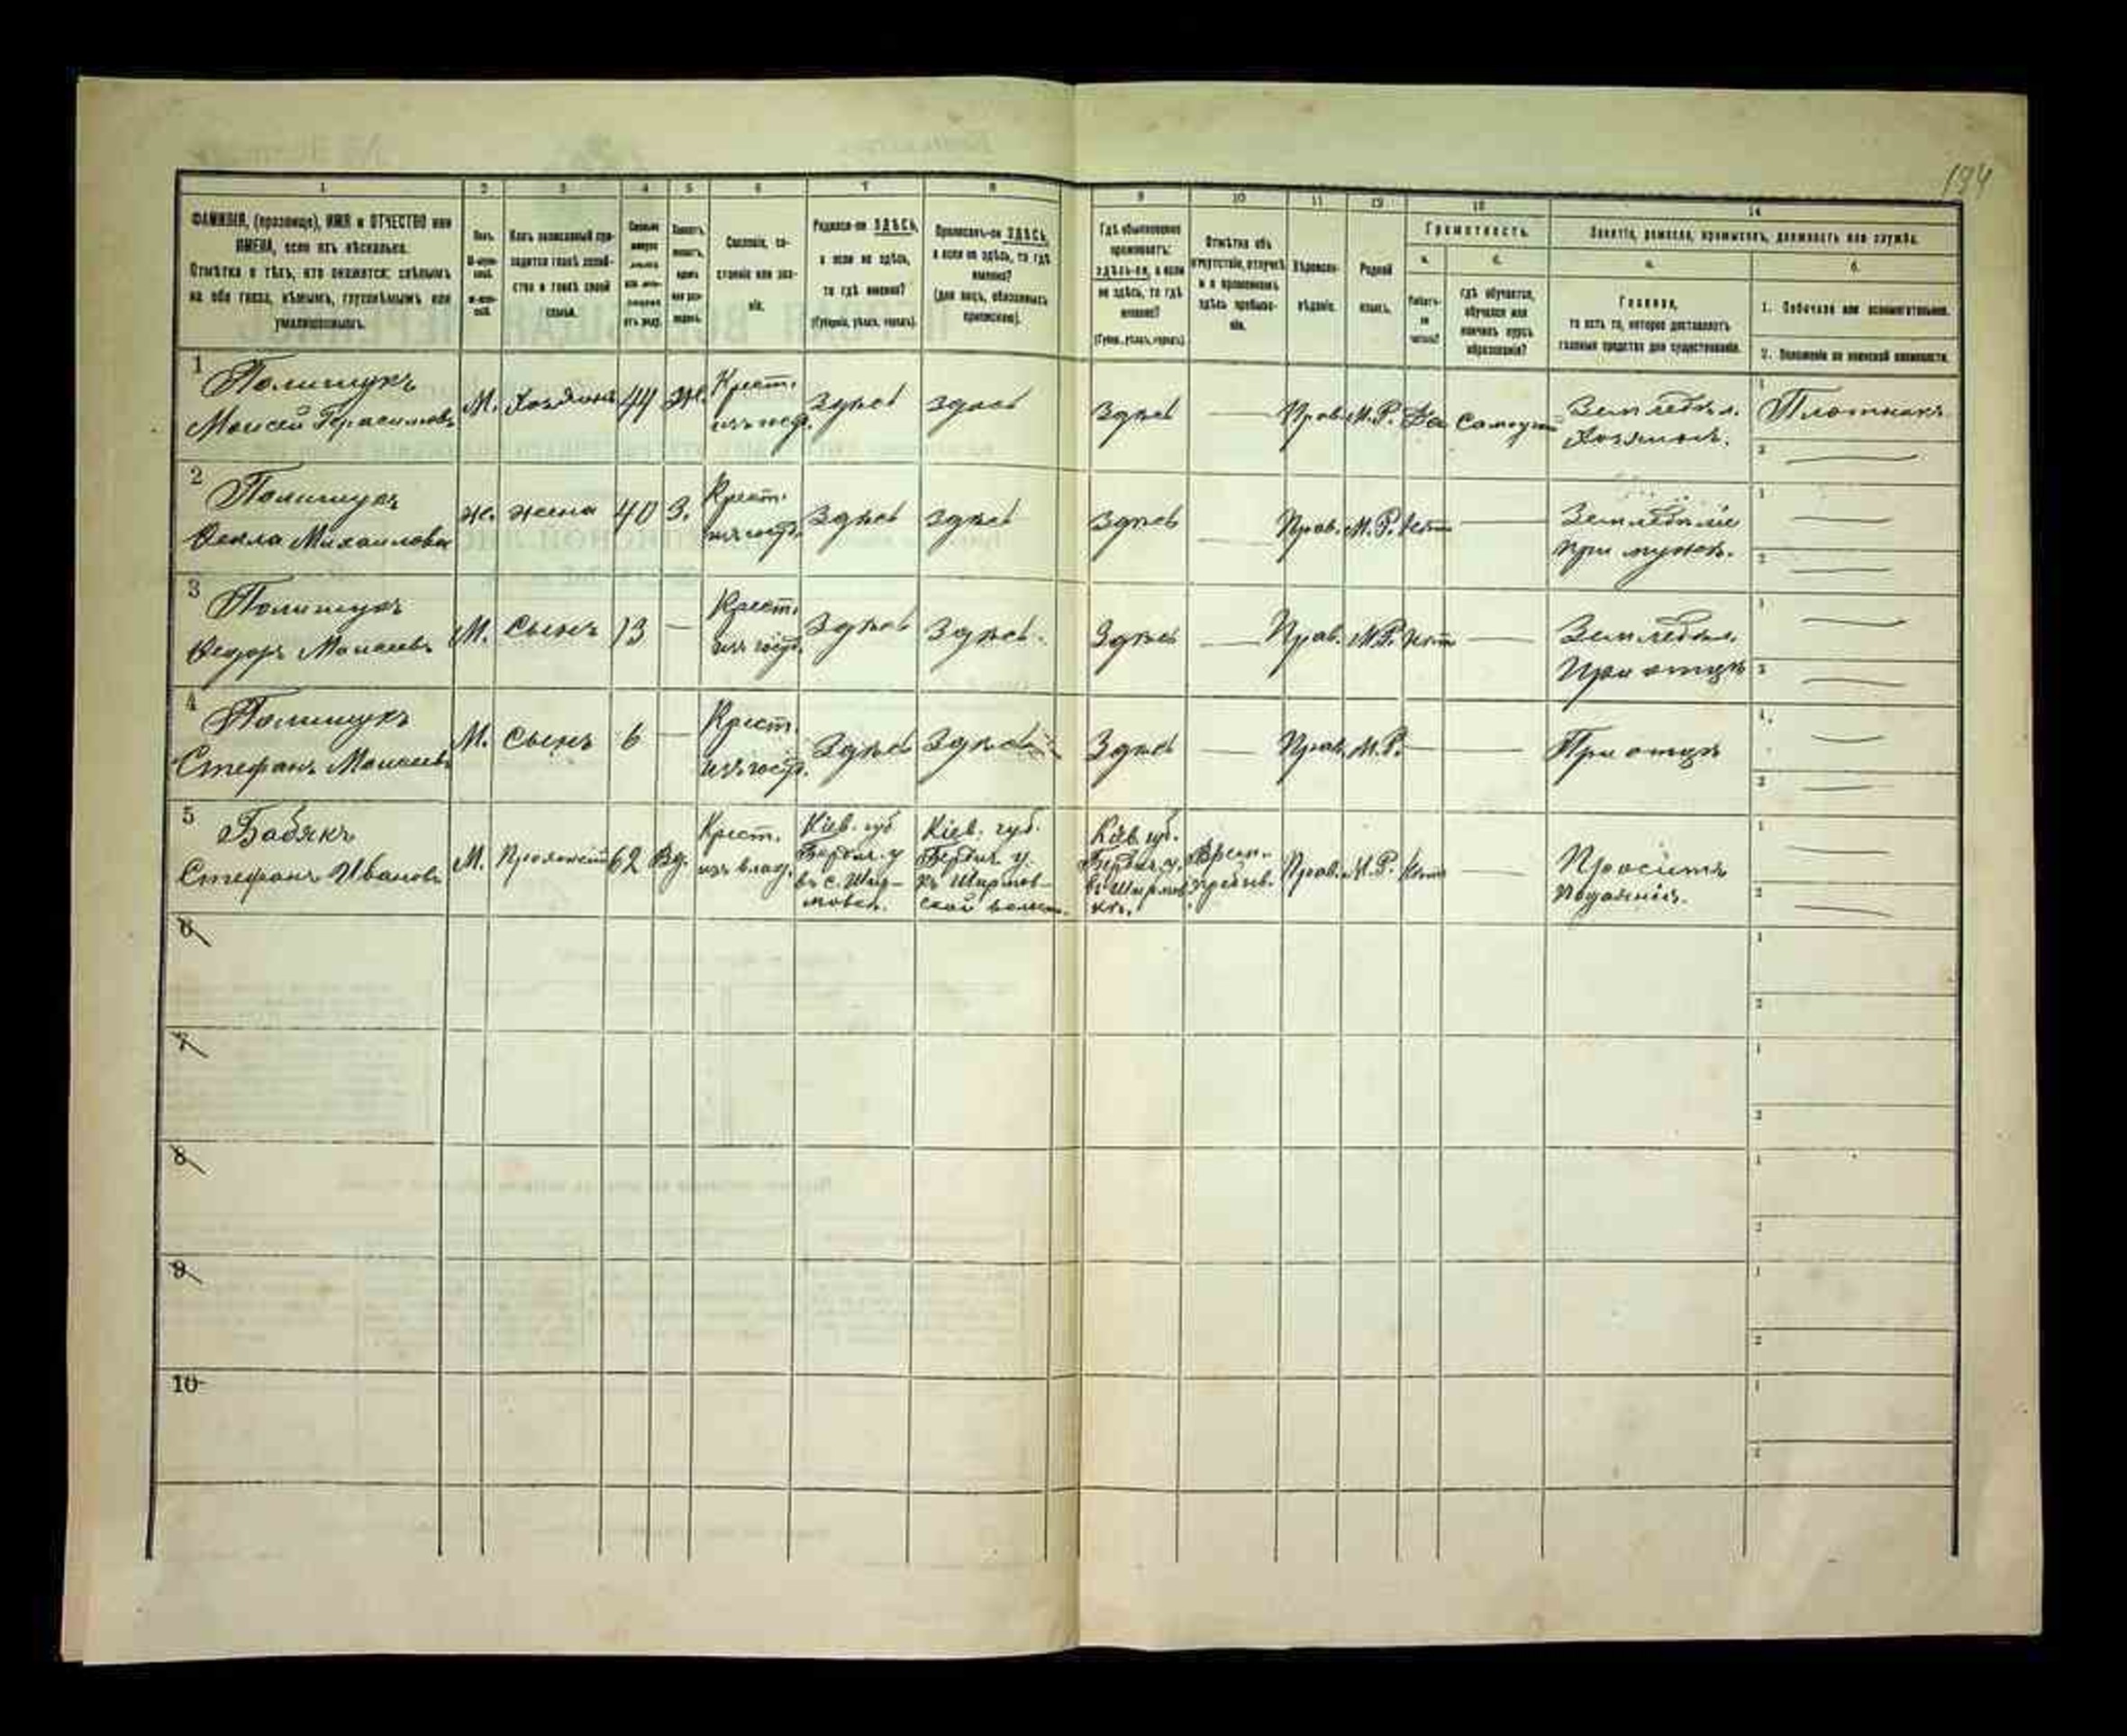 194
1 2 3 4 5 6 7 8 9 10 11 12 13 14
ФАМИЛІЯ, (прозвище), ИМЯ и ОТЧЕСТВО или
ИМЕНА, если ихъ нѣсколько.
Отмѣтка о тѣхъ, кто окажется: слѣпымъ
на оба глаза, нѣмымъ, глухонѣмымъ или
умалишеннымъ.
Полъ.
Какъ записанный при-
ходится главѣ хозяй-
ства и главѣ своей
семьи.
Сословіе, со-
стояніе или зва-
ніе.
Родился-ли ЗДѢСЬ,
а если не здѣсь,
то гдѣ именно?
(Губернія, уѣздъ, городъ).
Приписанъ-ли ЗДѢСЬ,
а если не здѣсь, то гдѣ
именно?
(для лицъ, обязанныхъ
припискою).
Гдѣ обыкновенно
проживаетъ:
здѣсь-ли, а если
не здѣсь, то гдѣ
именно?
(Губер., уѣздъ, городъ).
Отмѣтка объ
отсутствіи, отлучкѣ
и о временномъ
здѣсь пребыва-
ніи.
Вѣроиспо-
вѣданіе.
Родной
языкъ.
Грамотность.
а. б.
Умѣетъ-
ли
читать?
гдѣ обучается,
обучался или
кончилъ курсъ
образованія?
Занятіе, ремесло, промыселъ, должность или служба.
а. б.
Главное,
то есть то, которое доставляетъ
главныя средства для существованія.
1. Побочное или вспомогательное.
2. Положеніе по воинской повинности.
1 Полищукъ
Моисей Герасимовъ
М. Хозяинъ 44 Ж. Крест.
изъ госд. Здѣсь Здѣсь Здѣсь — Прав. М.Р. Да Самоуч. Земледѣл.
Хозяинъ. Плотникъ
2 Полищукъ
Фекла Михаилова
Ж. жена 40 З. Крест.
изъ госд. Здѣсь Здѣсь Здѣсь — Прав. М.Р. Нѣтъ — Земледѣліе
при мужѣ.
3 Полищукъ
Федоръ Моисеевъ
М. Сынъ 13 — Крест.
изъ госд. Здѣсь Здѣсь. Здѣсь — Прав. М.Р. Нѣтъ — Земледѣл.
При отцѣ
4 Полищукъ
Стефанъ Моисеевъ
М. Сынъ 6 — Крест.
изъ госд. Здѣсь Здѣсь Здѣсь — Прав. М.Р. — — При отцѣ
5 Бабякъ
Стефанъ Ивановъ
М. 62 Вд. Крест.
изъ влад.
Кіев. губ.
Бердич. у.
въ с. Шир-
мовкѣ.
Кіев. губ.
Бердич. у.
къ Ширмов-
ской волст.
Кіев. губ.
Бердич. у.
въ Ширмов-
кѣ.
Врем.
пребыв.
Прав. М.Р. Нѣтъ —
Проситъ
подаянія.
6
7
8
9
10